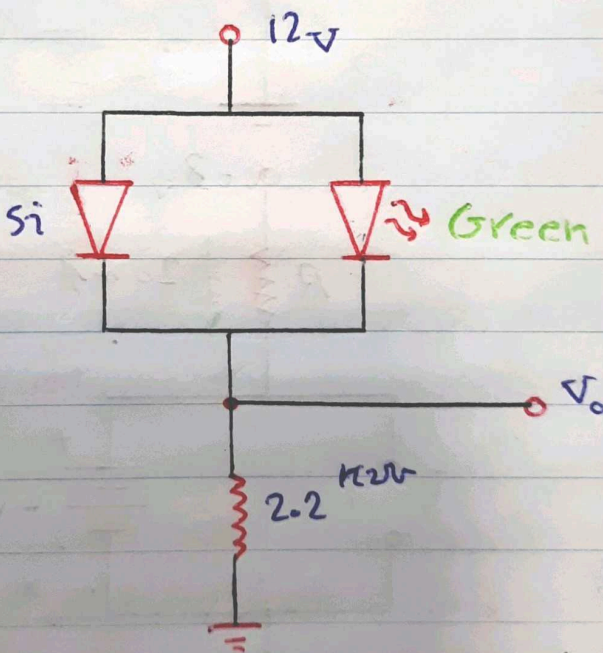 12V
Si
Green
Vo
2.2